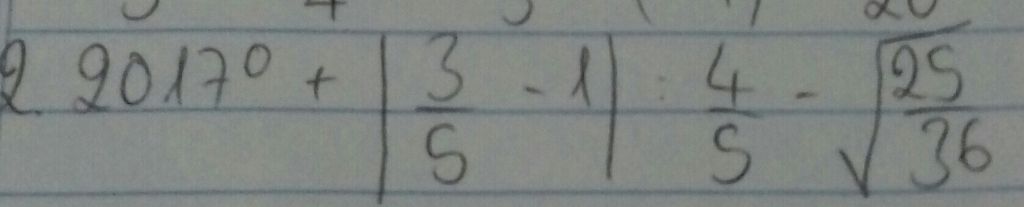 2. 2017⁰ + |3/5 - 1| : 4/5 - √(25/36)